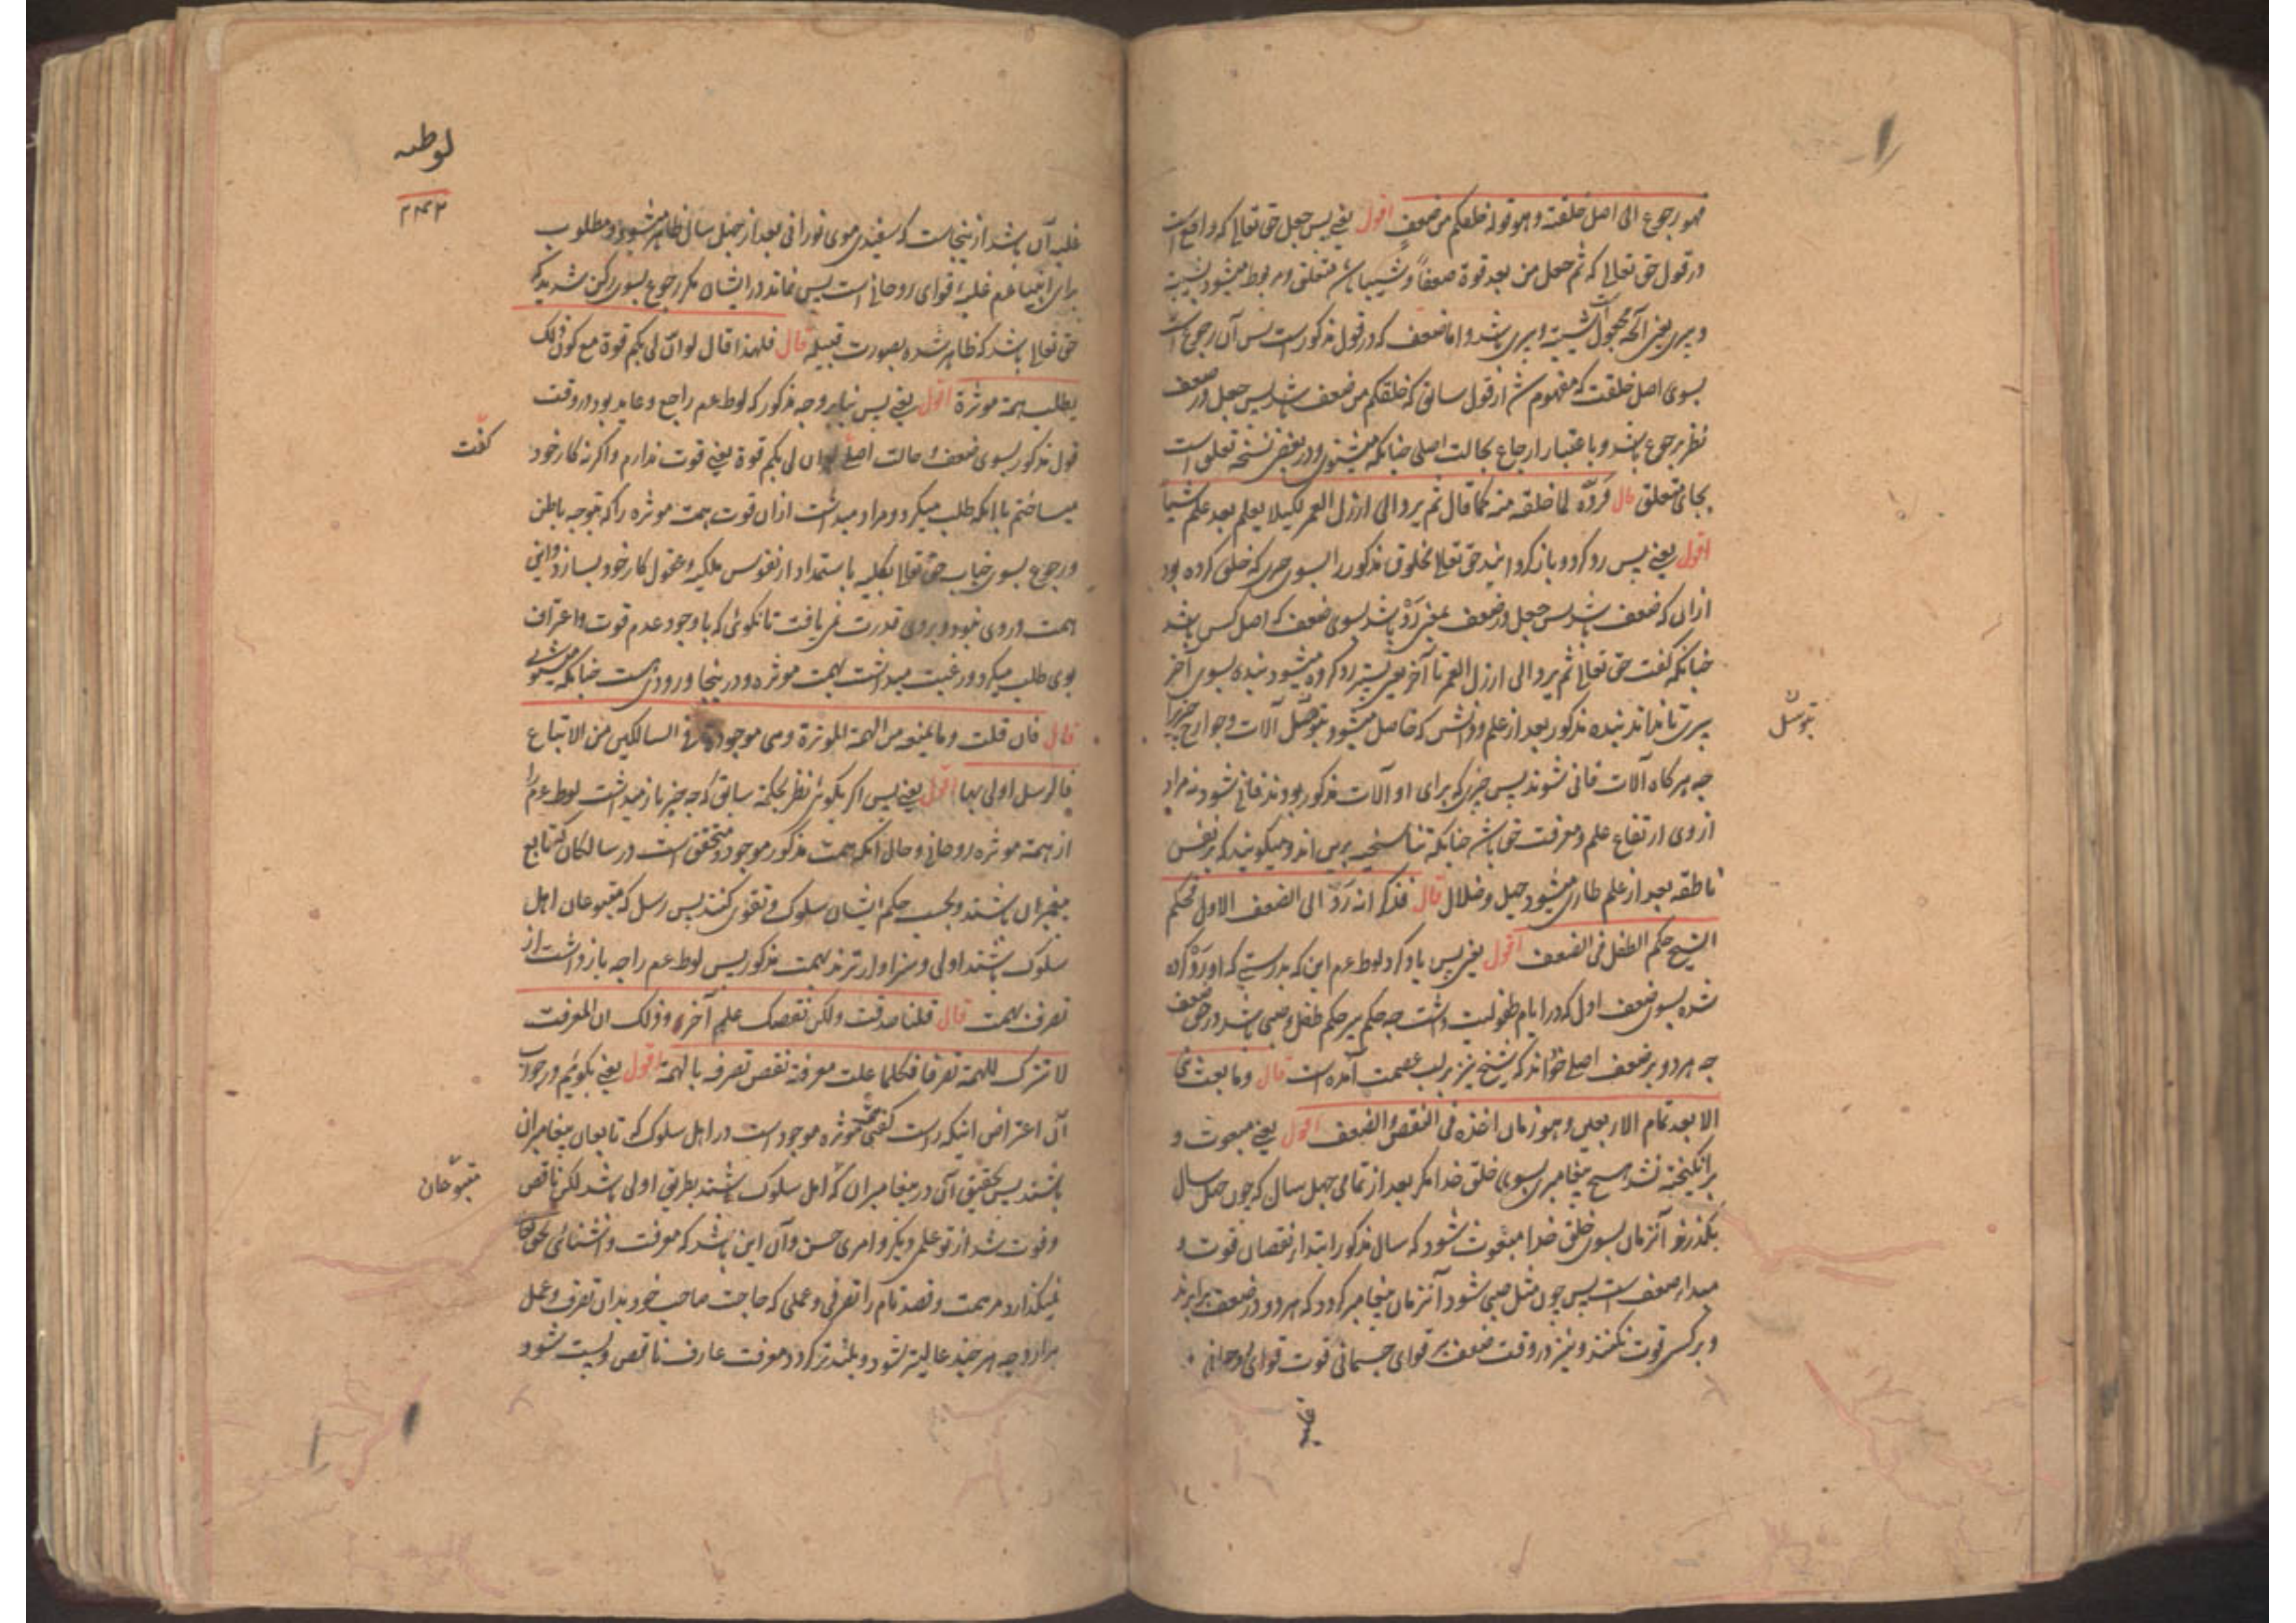 فهو رجوع الی اصل خلقته و هو قوله خلقکم من ضعف اقول یعنی پس جعل حق تعالی که واقع است
در قول حق تعالی که ثم جعل من بعد قوة ضعفاً و شیبا باشد متعلق و مربوط میشود بشیبة
و پیری یعنی آنچه مجعول است شیبة و پیری باشد و اما ضعف که در قول مذکور است پس آن رجوع است
بسوی اصل خلقت که مفهوم شد از قول سابق که خلقکم من ضعف باشد پس جعل در ضعف
نظر برجوع باشد و باعتبار ارجاع بحالت اصلی چنانکه میشنوی و در بعض نسخه تعلق است
بجای متعلق قال فردّه لما خلقه منه کما قال ثم یرد الی ارذل العمر لکیلا یعلم بعد علم شیئاً
اقول یعنی پس رد کرد و باز گردانید حق تعالی مخلوق مذکور را بسوی چیزی که خلق کرده بود
ازان که ضعف باشد پس جعل در ضعف بمعنی ردّ باشد بسوی ضعف که اصل کس باشد
چنانکه گفت حق تعالی ثم یرد الی ارذل العمر تا آخر یعنی پستر رد کرده میشود بنده بسوی آخر
پیری تا نداند بنده مذکور بعد از علم و دانش که حاصل میشود بتوسّل آلات و جوارح چیزی را
بتوسّل
چه هر گاه آلات فانی شوند پس چیزی که برای او آلات مذکور بودند فانی شود نه مراد
از وی ارتفاع علم و معرفت حق باشد چنانکه تناسخیه برین اند و میگویند که بر نفس
ناطقه بعد از علم طاری میشود جهل و ضلال قال فذکر انه رَدّ الی الضعف الاول فحکم
الشیخ حکم الطفل فی الضعف اقول یعنی پس یاد کرد لوط عم این که بدرستی که او ردّ کرده
شده بسوی ضعف اول که در ایام طفولیت داشت چه حکم پیر حکم طفل و صبی باشد در حق ضعف
چه هر دو بر ضعف اصلی خواند که شیخ نیز بر لب عصمت آمده است قال و ما بعث نبی
الا بعد تمام الاربعین و هو زمان اخذه فی النقص و الضعف اقول یعنی مبعوث و
برانگیخته نشد هیچ پیغامبری بسوی خلق خدا مگر بعد از تمامی چهل سال که چون چهل سال
بگذرد آنزمان بسوی خلق خدا مبعوث شود که سال مذکور ابتداء نقصان قوت و
مبداء ضعف است پس چون مثل صبی شود آنزمان پیغامبر گردد که هر دو در ضعف برابرند
و بر کس قوت نکنند و نیز در وقت ضعف قوای جسمانی قوت قوای روحانی
غلبه
لوطیه
۲۴۳
غلبه آن باشد از ینجاست که سفیدی موی نورانی بعد از چهل سال ظاهر میشود و مطلوب
برای انبیا عم غلبهٔ قوای روحانی است پس نماند در ایشان مگر رجوع بسوی رکن شدید که
حق تعالی باشد که ظاهر شده بصورت قبیله قال فلهذا قال لو ان لی بکم قوة مع کون ذلک
یطلب همة موثرة اقول یعنی پس بنابر وجه مذکور که لوط عم راجع و عاید بود در وقت
قول مذکور بسوی ضعف و حالت اصلی لو ان لی بکم قوة یعنی قوت ندارم و اگر نه کار خود
گفت
میساختم با آنکه طلب میکرد و مراد میداشت ازان قوت همت موثره را که بتوجه باطن
و رجوع بسوی جناب حق تعالی بکلیه باستمداد از نفوس ملکیه و عقول کار خود بسازد و این
همت در وی نبود و بروی قدرت نمی یافت تا نگوئی که با وجود عدم قوت و اعتراف
بوی طلب میکرد و رغبت میداشت بهمت موثره و در ینجا ورودی است چنانکه میشنوی
قال فان قلت و ما یمنعه من الهمة الموثرة و هی موجودة فی السالکین من الاتباع
فالرسل اولی بها اقول یعنی پس اگر بگوئی نظر بحکمت سابق که چه چیز باز میداشت لوط عم را
از همت موثره روحانی و حال آنکه همت مذکور موجود و متحقق است در سالکان که تابع
پیغمبران باشند و بحسب حکم ایشان سلوک و تقوی کنند پس رسل که متبوعان اهل
سلوک باشند اولی و سزاوارترند بهمت مذکور پس لوط عم را چه باز داشت از
تصرف بهمت قال قلنا صدقت و لکن نقصک علم آخر و ذلک ان المعرفت
لا تترک للهمة تصرفا فکلما علت معرفة نقص تصرفه بالهمة اقول یعنی بگوئیم در جواب
آن اعتراض اینکه راست گفتی همت موثره موجود است در اهل سلوک که تابعان پیغامبران
باشند پس تحقیق آن در پیغامبران که اهل سلوک باشند بطریق اولی باشد لکن ناقص
متبوعان
و فوت شد از تو علمی دیگر و امری حسن و آن این باشد که معرفت و آشنائی بحق تعالی
نمیگذارد مر همت و قصد تام را تصرفی و عملی که حاجت صاحب خود بدان تصرف و عمل
برآرد چه هر چند عالیتر شود و بلندتر گردد معرفت عارف ناقص و پست شود